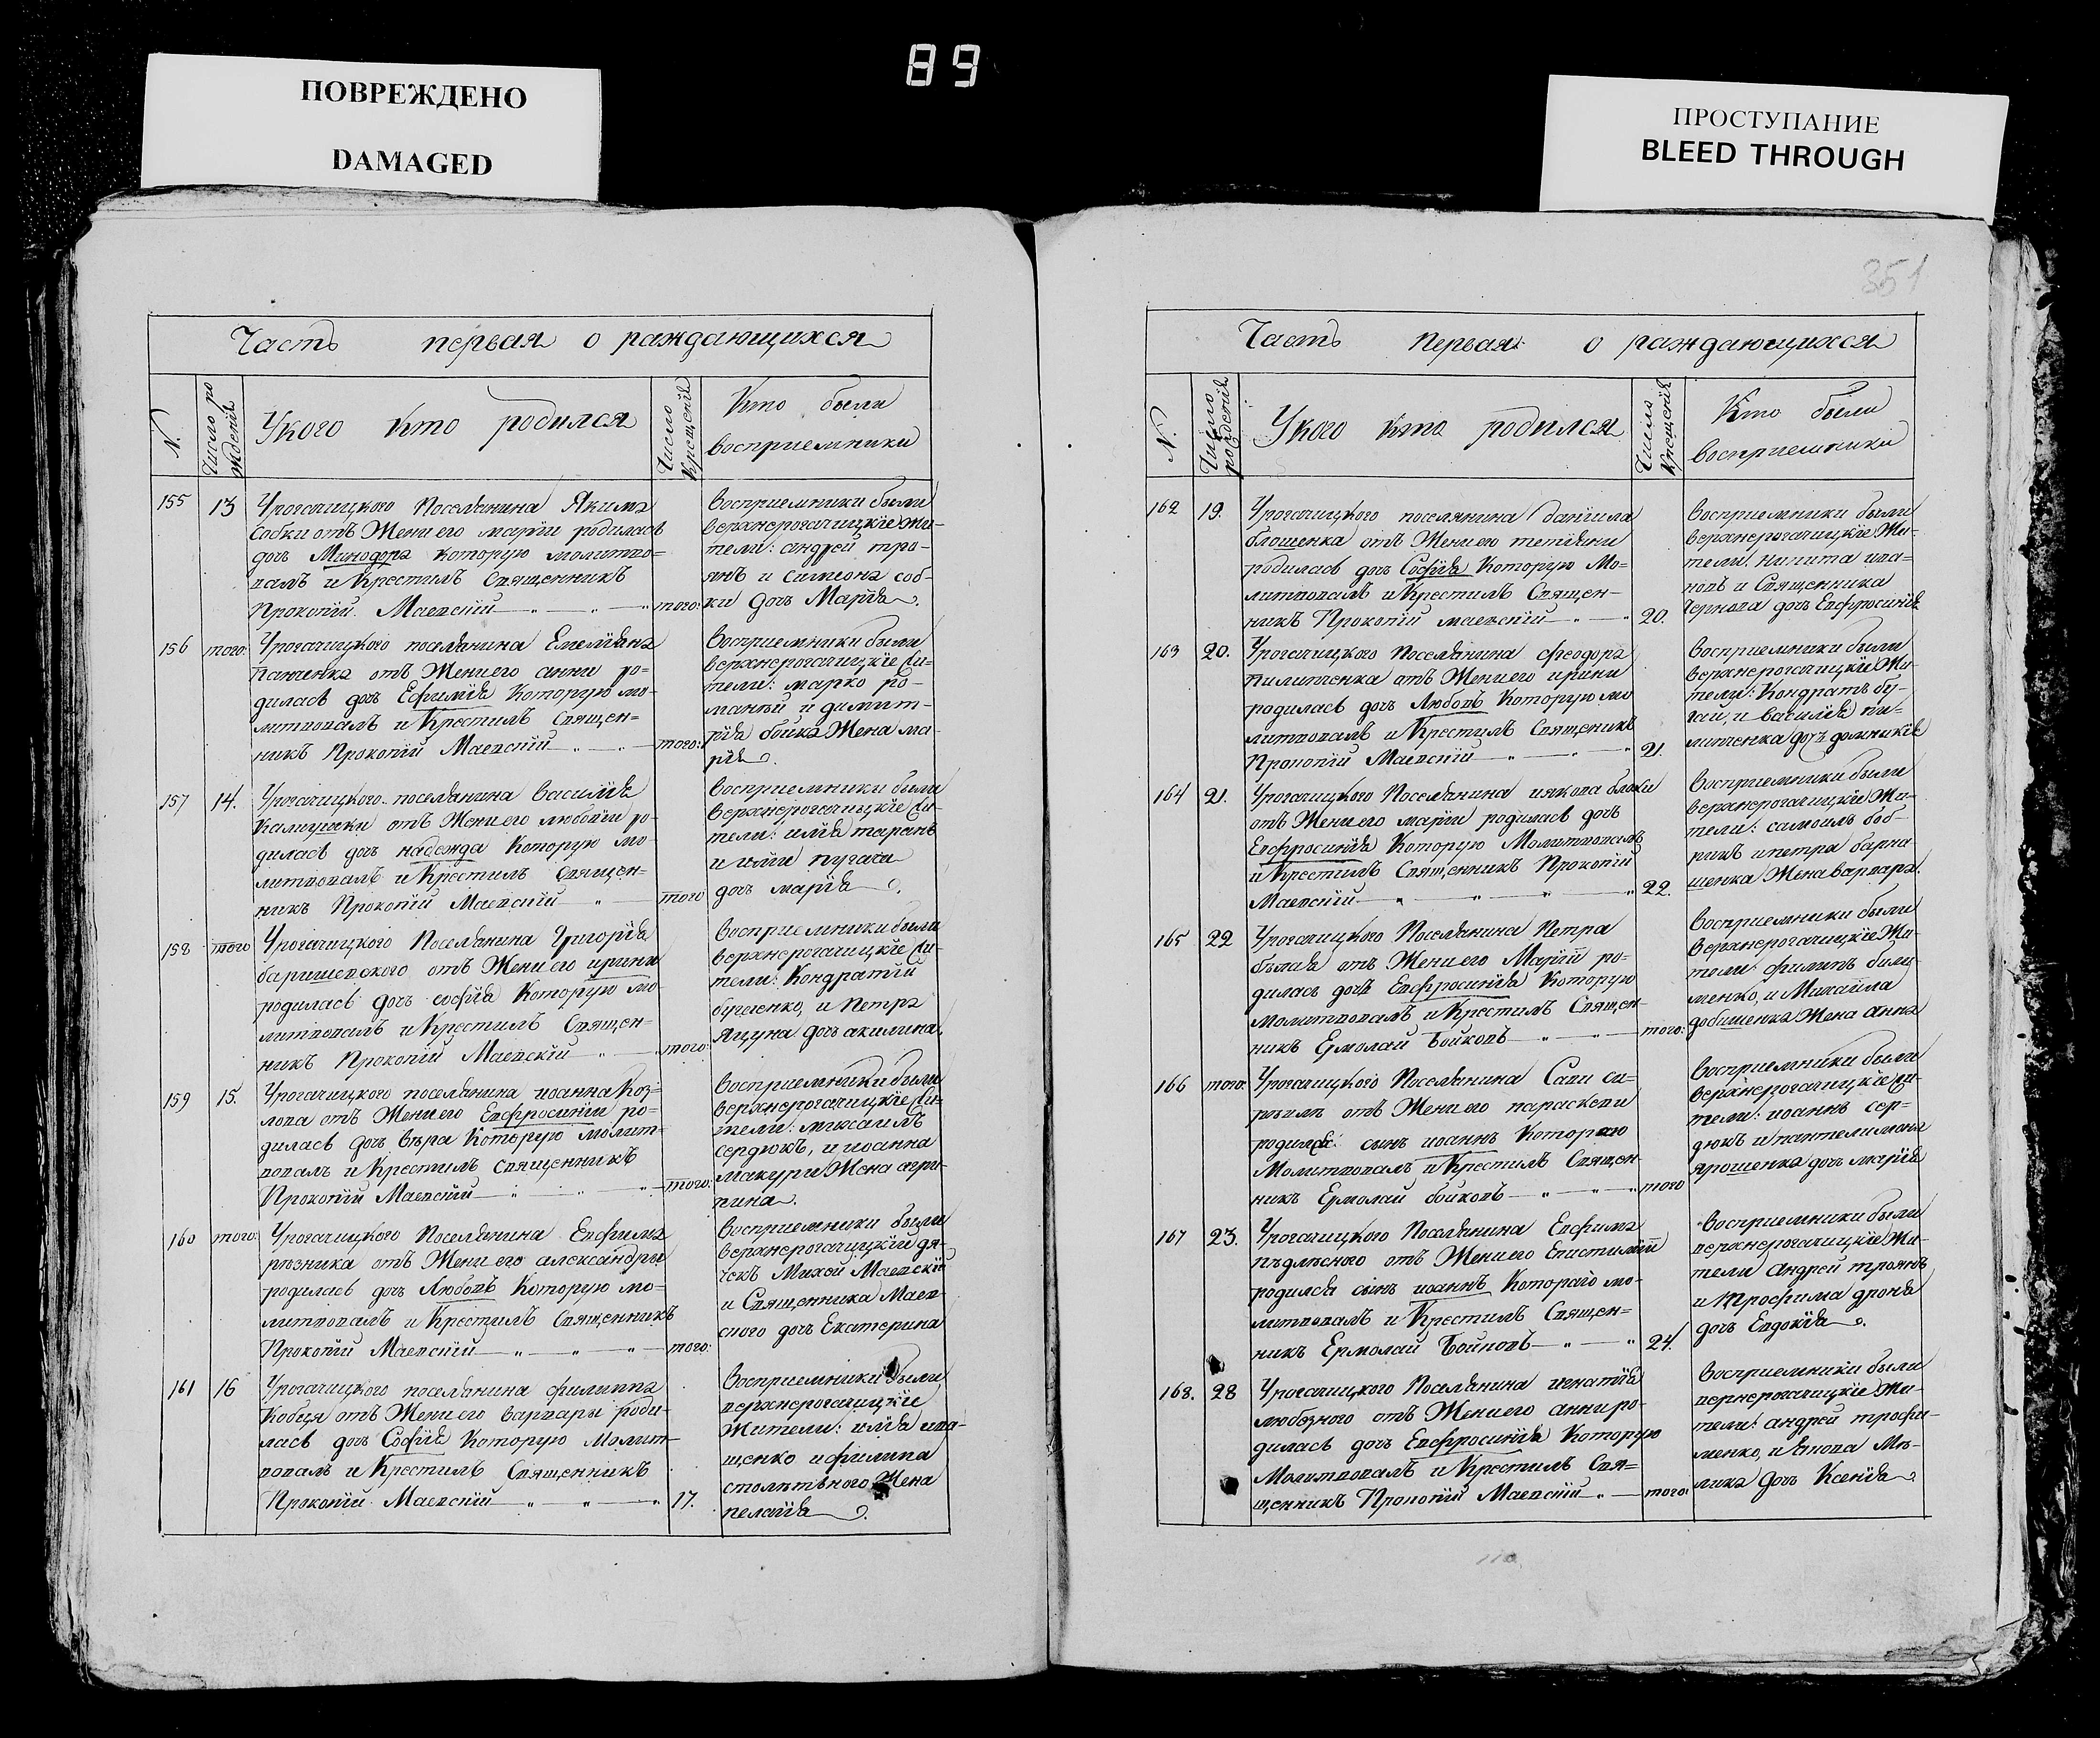 89
ПОВРЕЖДЕНО
DAMAGED
ПРОСТУПАНИЕ
BLEED THROUGH
Часть первая о раждающихся
N.
Число рождения
У кого кто родился
Число крещения
Кто были
восприемники
155 13 У рогачицкого поселянина Якима
собки отъ жени его марии родилась
дочь Минодора которую молитво=
валъ и крестилъ Священникъ
Прокопій Маевскій того:
восприемники были
верхнерогачицкіе жи-
тели: андрей тро-
янъ и симеона соб-
ки дочь Марія.
156 того: У рогачицкого поселянина Емеліяна
отъ жени его анни ро-
дилась дочь Ефимія которую мо-
литвовалъ и крестилъ Священ=
никъ Прокопій Маевскій того:
восприемники были
верхнерогачицкіе жи-
тели: марко ро-
маній и димит-
рія бойка жена ма-
рія.
157 14. У рогачицкого поселянина василія
отъ жени его любовіи ро-
дилась дочь надежда которую мо-
литвовалъ и крестилъ Священ=
никъ Прокопій Маевскій того
восприемники были
верхнерогачицкіе жи-
тели: илія таранъ
и иліи пугача
дочь марія.
158 того У рогачицкого поселянина Григорія
баришевского отъ жени его ирини
родилась дочь софія которую мо-
литвовалъ и крестилъ Священ=
никъ Прокопій Маевскій того:
восприемники были
верхнерогачицкіе жи-
тели: Кондратій
бугаенко, и петра
яцуна дочь акилина.
159 15. У рогачицкого поселянина иоанна Коз=
лова отъ жени его Евфросиніи ро-
дилась дочь вѣра которую молит-
вовалъ и крестилъ священникъ
Прокопій Маевскій того:
восприемники были
верхнерогачицкіе жи-
тели: михаилъ
сердюкъ, и иоанна
макури жена агри-
пина.
160 того: У рогачицкого поселянина Евфима
рѣзника отъ жени его александры
родилась дочь Любовь которую мо-
литвовалъ и крестилъ Священникъ
Прокопій Маевскій того:
восприемники были
верхнерогачицкій дя-
чекъ Михей Маевскій
и Священника Маев-
ского дочь Екатерина
161 16 У рогачицкого поселянина филиппа
Кобця отъ жени его варвары роди-
лась дочь Софія которую молит-
вовалъ и крестилъ Священникъ
Прокопій Маевскій 17.
восприемники были
верхнерогачицкіе
жители: илія ива-
щенко и филипа
столѣтнего жена
пелагія.
351
Часть первая о раждающихся
N.
Число рождения
У кого кто родился
Число крещения
Кто были
восприемники
162 19. У рогачицкого поселянина даніила
блошенка отъ жени его тетіяни
родилась дочь Софія которую мо=
литвовалъ и крестилъ Священ-
никъ Прокопій маевскій 20.
восприемники были
верхнерогачицкіе жи-
тели: никита ива-
новъ и Священника
Чернова дочь Евфросинія
163 20. У рогачицкого поселянина феодора
пилипченка отъ жени его ирини
родилась дочь Любовь которую мо
литвовалъ и крестилъ Священикъ
Прокопій Маевскій 21.
восприемники были
верхнерогачицкіе жи-
тели: Кондратъ бу-
гай, и василія пи-
липченка дочь домникія
164 21. У рогачицкого поселянина иякова блохи
отъ жени его маріи родилась дочь
Евфросинія которую молитвовалъ
и крестилъ Священникъ Прокопій
Маевскій 22.
восприемники были
верхнерогачицкіе жи-
тели: самоилъ боб-
рикъ и петра барна-
шенка жена варвара.
165 22 У рогачицкого поселянина Петра
отъ жени его Маріи ро-
дилась дочь Евфросинія которую
молитвовалъ и крестилъ Священ-
никъ Ермолай Бойковъ того:
восприемники были
верхнерогачицкіе жи-
тели: филипъ
менко, и Михаила
жена анна
166 того: У рогачицкого поселянина Сави
отъ жени его параскеви
родился: сынъ иоаннъ которого
молитвовалъ и крестилъ Священ-
никъ Ермолай бойковъ того
восприемники были
верхнерогачицкіе жи-
тели: иоаннъ сер=
дюкъ и пантелимона
ярошенка дочь марія
167 23. У рогачицкого поселянина Евфима
отъ жени его Епистиміи
родился сынъ иоаннъ которого мо-
литвовалъ и крестилъ Священ=
никъ Ермолай Бойковъ 24.
восприемники были
верхнерогачицкіе жи-
тели андрей троянъ
и трофима дроня
дочь Евдокія.
168. 28 У рогачицкого поселянина игнатія
любѣзного отъ жени его анни ро-
дилась дочь Евфросинія которую
молитвовалъ и крестилъ Свя=
щенникъ Прокопій Маевскій того:
восприемники были
верхнерогачицкіе жи-
тели: андрей трофи-
менко, и
дочь Ксенія